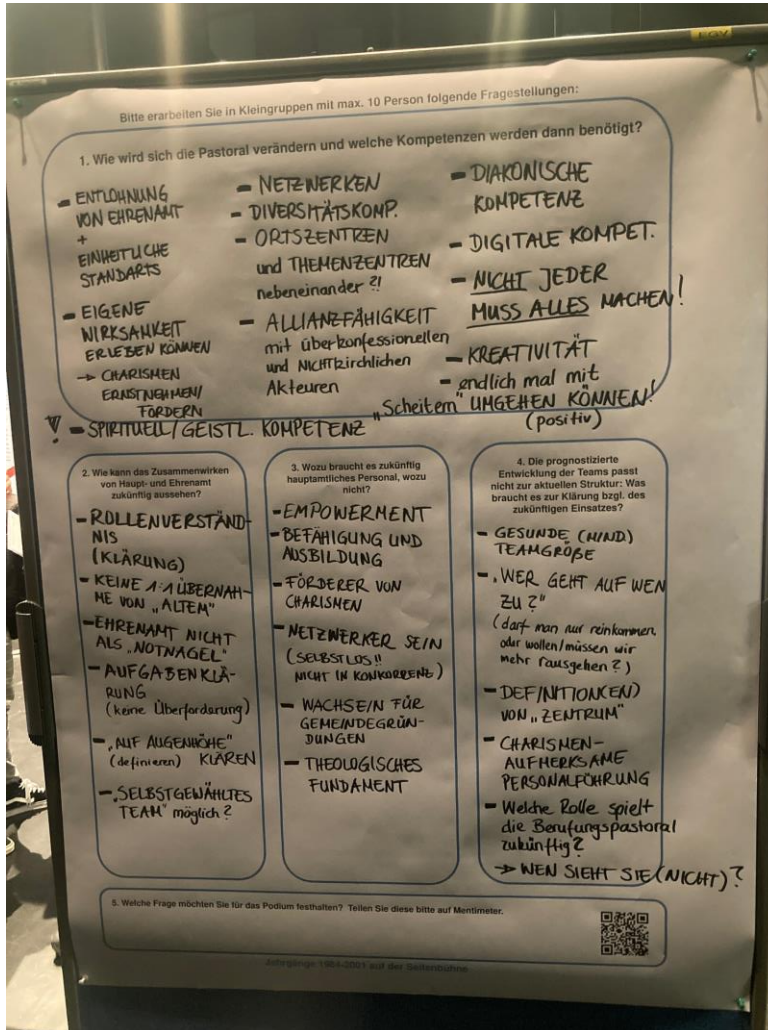 EGV
Bitte erarbeiten Sie in Kleingruppen mit max. 10 Person folgende Fragestellungen:
1. Wie wird sich die Pastoral verändern und welche Kompetenzen werden dann benötigt?
- ENTLOHNUNG
VON EHRENAMT
+
EINHEITLICHE
STANDARTS
- EIGENE
WIRKSAMKEIT
ERLEBEN KÖNNEN
→ CHARISMEN
ERNSTNEHMEN/
FÖRDERN
- NETZWERKEN
- DIVERSITÄTSKOMP.
- ORTSZENTREN
und THEMENZENTREN
nebeneinander ?!
- ALLIANZFÄHIGKEIT
mit überkonfessionellen
und NICHTkirchlichen
Akteuren
- DIAKONISCHE
KOMPETENZ
- DIGITALE KOMPET.
- NICHT JEDER
MUSS ALLES MACHEN!
- KREATIVITÄT
- endlich mal mit
„Scheitern" UMGEHEN KÖNNEN!
(positiv)
! - SPIRITUELL/GEISTL. KOMPETENZ
2. Wie kann das Zusammenwirken
von Haupt- und Ehrenamt
zukünftig aussehen?
- ROLLENVERSTÄND-
NIS
(KLÄRUNG)
- KEINE 1:1 ÜBERNAH-
ME VON „ALTEM"
- EHRENAMT NICHT
ALS „NOTNAGEL"
- AUFGABENKLÄ-
RUNG
(keine Überforderung)
- „AUF AUGENHÖHE"
(definieren) KLÄREN
- „SELBSTGEWÄHLTES
TEAM" möglich?
3. Wozu braucht es zukünftig
hauptamtliches Personal, wozu
nicht?
- EMPOWERMENT
- BEFÄHIGUNG UND
AUSBILDUNG
- FÖRDERER VON
CHARISMEN
- NETZWERKER SEIN
(SELBSTLOS!!
NICHT IN KONKURRENZ)
- WACHSEIN FÜR
GEMEINDEGRÜN-
DUNGEN
- THEOLOGISCHES
FUNDAMENT
4. Die prognostizierte
Entwicklung der Teams passt
nicht zur aktuellen Struktur: Was
braucht es zur Klärung bzgl. des
zukünftigen Einsatzes?
- GESUNDE (MIND.)
TEAMGRÖßE
- „WER GEHT AUF WEN
ZU?"
(darf man nur reinkommen,
oder wollen/müssen wir
mehr rausgehen?)
- DEFINITION(EN)
VON „ZENTRUM"
- CHARISMEN-
AUFMERKSAME
PERSONALFÜHRUNG
- Welche Rolle spielt
die Berufungspastoral
zukünftig?
→ WEN SIEHT SIE (NICHT)?
5. Welche Frage möchten Sie für das Podium festhalten? Teilen Sie diese bitte auf Mentimeter.
Jahrgänge 1981-2001 auf der Seitenbühne